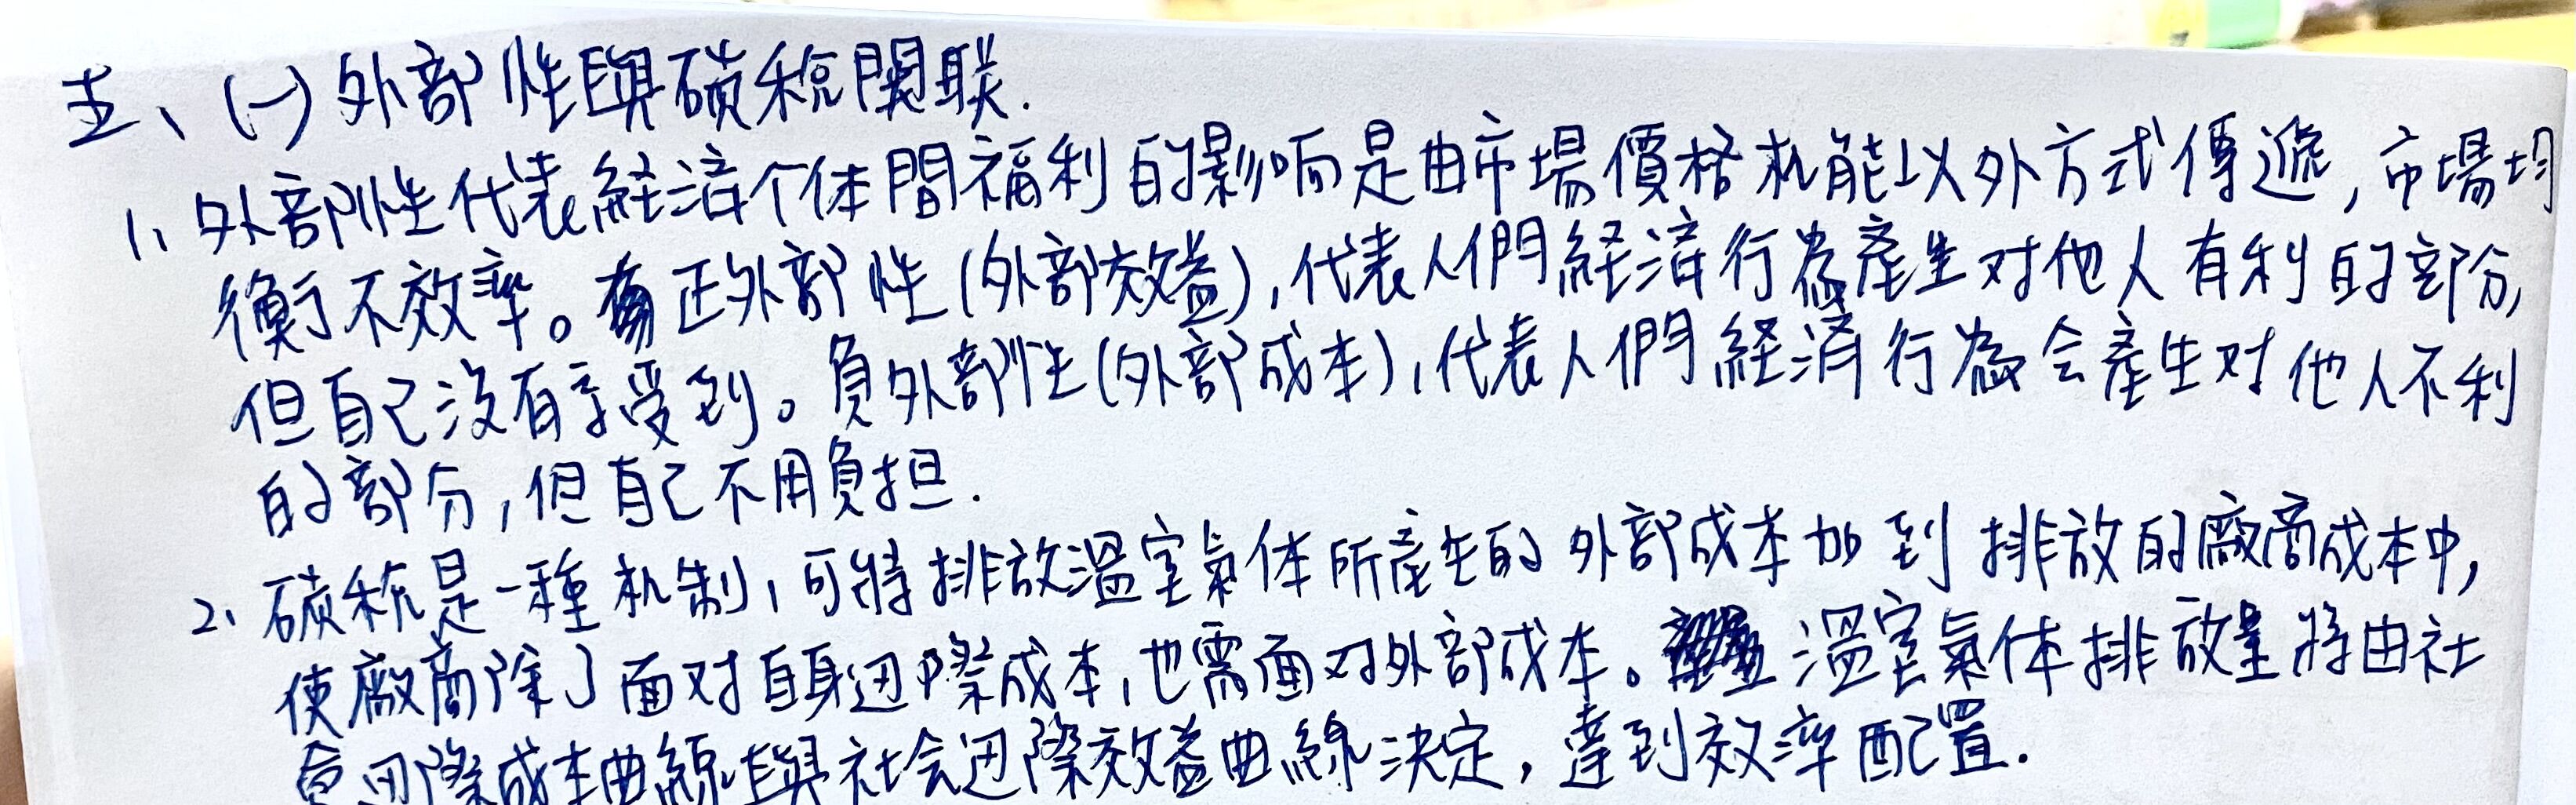 五、(一) 外部性與碳稅関联.
1、外部性代表経済个体間福利的影响是由市場價格机能以外方式傳遞,市場均
衡不效率。有正外部性(外部效益),代表人們経済行為產生对他人有利的部分,
但自己沒有享受到。負外部性(外部成本),代表人們経済行為会產生对他人不利
的部分,但自己不用負担.
2、碳稅是一種机制,可將排放溫室氣体所產生的外部成本加到排放的廠商成本中,
使廠商除了面对自身边際成本,也需面对外部成本。溫室氣体排放量將由社
會边際成本曲線與社会边際效益曲線決定,達到效率配置.